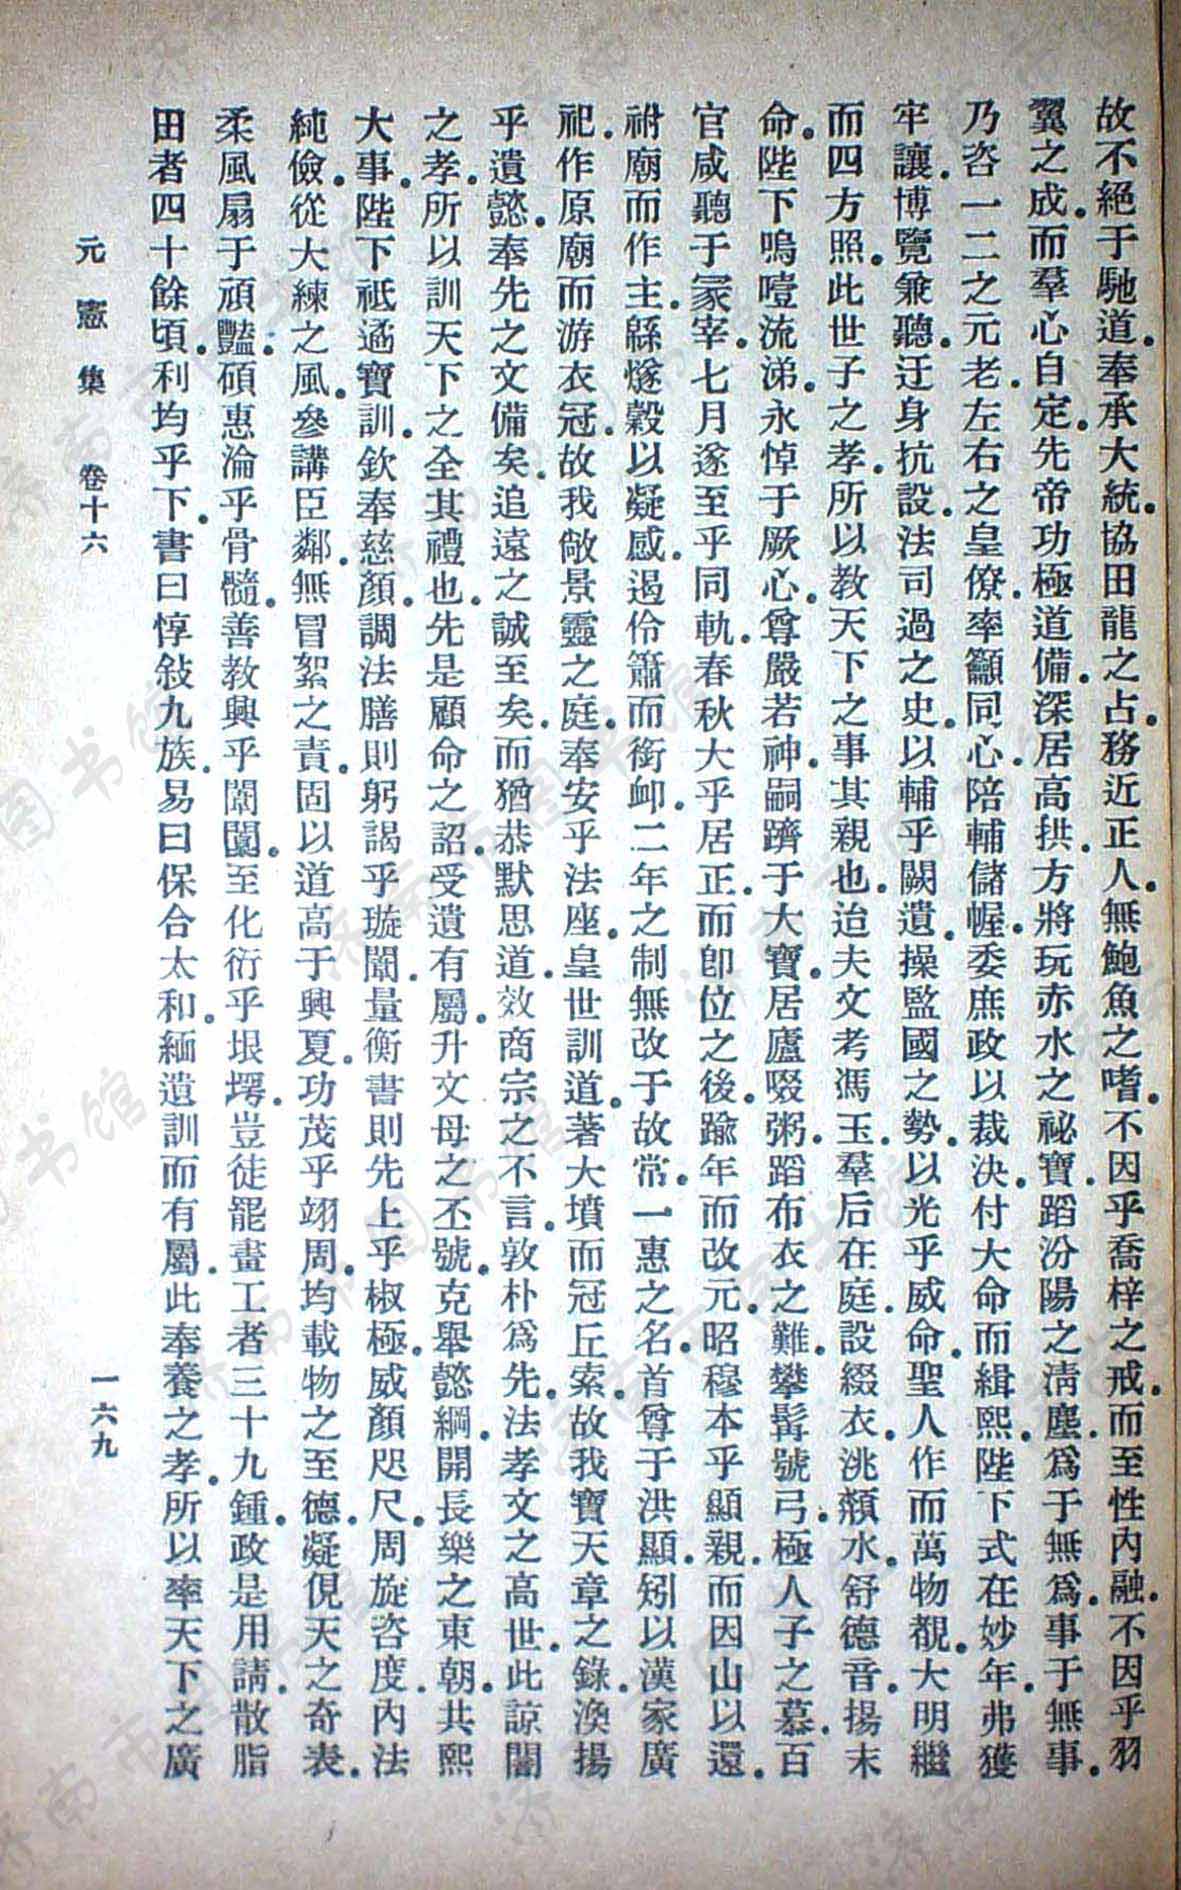 故不絕于馳道。奉承大統。協田龍之占。務近正人。無鮑魚之嗜。不因乎喬梓之戒。而至性內融。不因乎羽
翼之成。而羣心自定。先帝功極道備。深居高拱。方將玩赤水之祕寶。蹈汾陽之淸塵。爲于無爲。事于無事。
乃咨一二之元老。左右之皇僚。率籲同心。陪輔儲幄。委庶政以裁決。付大命而緝熙。陛下式在妙年。弗獲
牢讓。博覽兼聽。迂身抗設。法司過之史。以輔乎闕遺。操監國之勢。以光乎威命。聖人作而萬物覩。大明繼
而四方照。此世子之孝。所以教天下之事其親也。迨夫文考馮玉。羣后在庭。設綴衣。洮頮水。舒德音。揚末
命。陛下嗚噎流涕。永悼于厥心。尊嚴若神。嗣躋于大寶。居廬啜粥。蹈布衣之難。攀髯號弓。極人子之慕。百
官咸聽于冢宰。七月遂至乎同軌。春秋大乎居正。而卽位之後。踰年而改元。昭穆本乎顯親。而因山以還。
祔廟而作主。緜燧穀以凝感。遏伶簫而銜卹。二年之制無改于故常。一惠之名。首尊于洪顯。矧以漢家廣
祀。作原廟而游衣冠。故我敞景靈之庭。奉安乎法座。皇世訓道。著大墳而冠丘索。故我寶天章之錄。渙揚
乎遺懿。奉先之文備矣。追遠之誠至矣。而猶恭默思道。效商宗之不言。敦朴爲先。法孝文之高世。此諒闇
之孝。所以訓天下之全其禮也。先是顧命之詔。受遺有屬。升文母之丕號。克舉懿綱。開長樂之東朝。共熙
大事。陛下祗遹寶訓。欽奉慈顏。調法膳則躬謁乎璇闈。量衡書則先上乎椒極。威顏咫尺。周旋咨度。內法
純儉。從大練之風。參講臣鄰。無冒絮之責。固以道高于興夏。功茂乎翊周。均載物之至德。凝俔天之奇表。
柔風扇于頑豔。碩惠淪乎骨髓。善教興乎闈闥。至化衍乎垠堮。豈徒罷畫工者三十九鍾。政是用請。散脂
田者四十餘頃。利均乎下。書曰惇敍九族。易曰保合太和。緬遺訓而有屬。此奉養之孝。所以率天下之廣
元憲集 卷十六 一六九